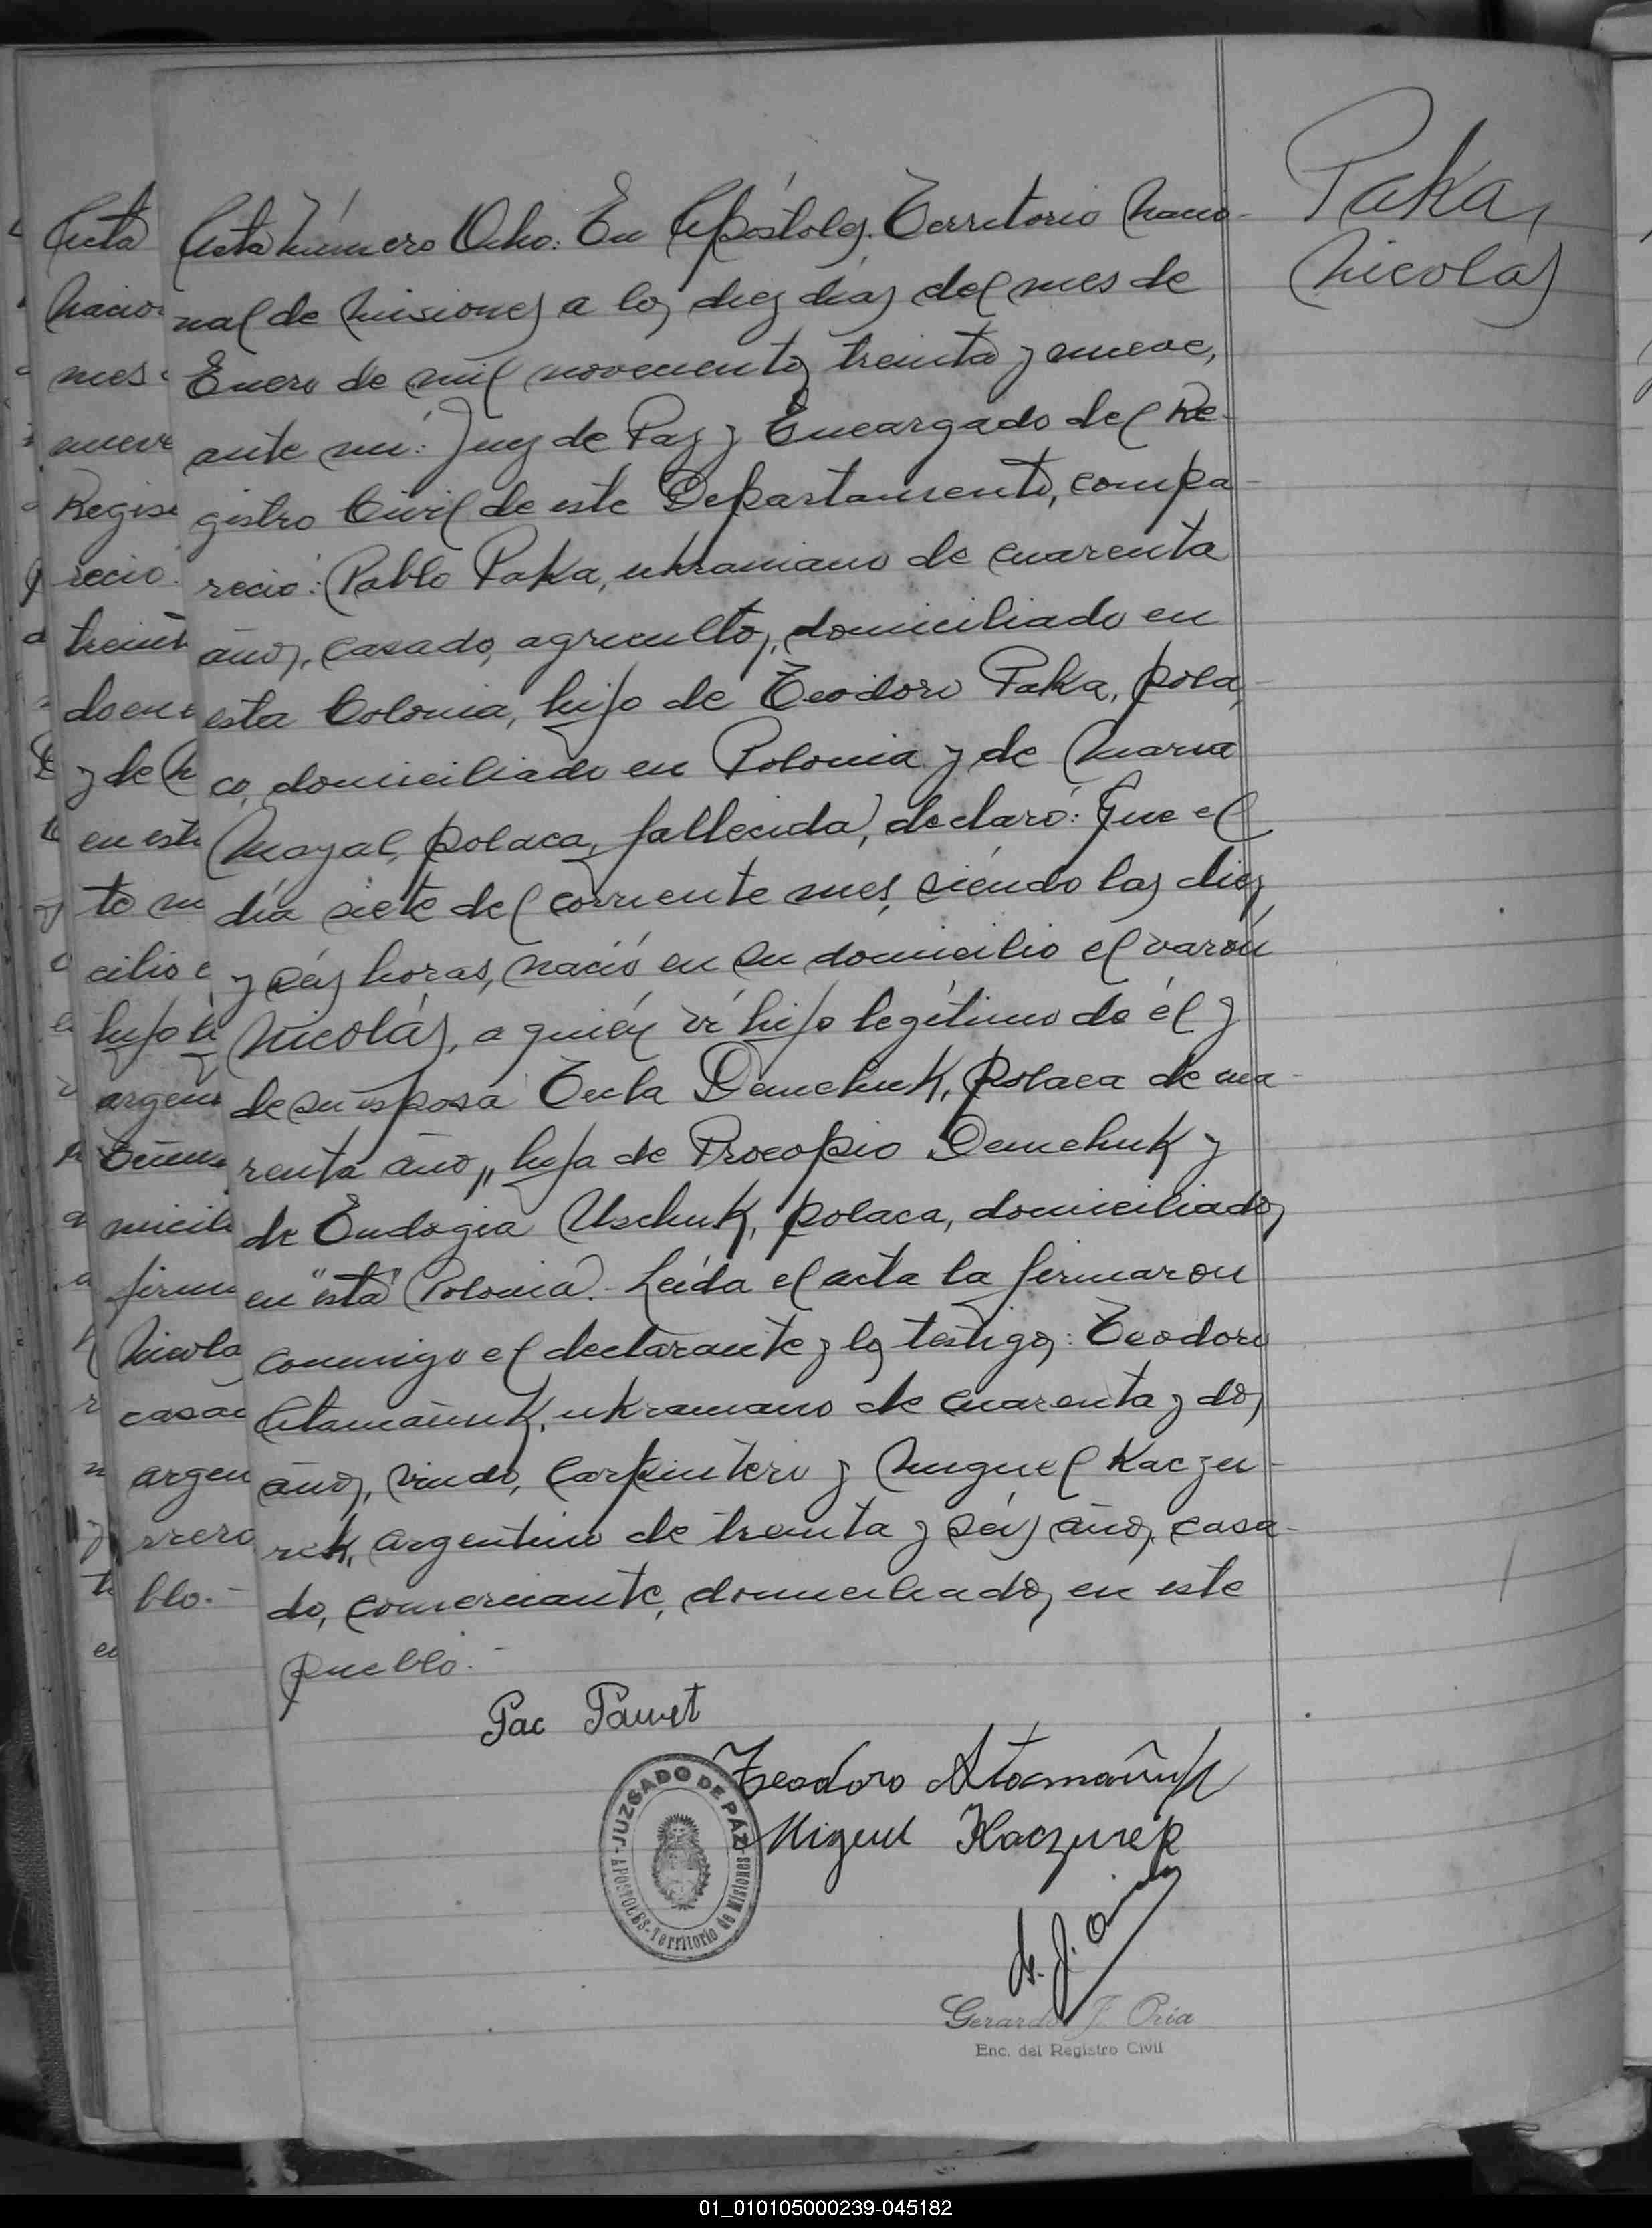 Paka,
Nicolas
Acta número Ocho: En Apóstoles, Territorio Nacio-
nal de Misiones a los diez días del mes de
Enero de mil novecientos treinta y nueve,
ante mi: Juez de Paz y Encargado del Re-
gistro Civil de este Departamento, compa-
reció: Pablo Paka, ukraniano de cuarenta
años, casado, agricultor, domiciliado en
esta Colonia, hijo de Teodoro Paka, pola-
co, domiciliado en Polonia y de Maria
Mayal, polaca, fallecida, declaró: Que el
día siete del corriente mes, siéndo las diez
y séis horas, nació en su domicilio el varón
Nicolás, a quién ví hijo legítimo de él y
de su esposa Tecla Demchuk, polaca de cua-
renta años, hija de Procopio Demchuk y
de Eudogia Uschuk, polaca, domiciliados
en "esta" Polonia.- Leída el acta la firmaron
conmigo el declarante y los testigos: Teodoro
Atamañuk, ukraniano de cuarenta y dos
años, viudo, carpintero y Miguel Kaczu-
rek, argentino de treinta y séis años, casa-
do, comerciante, domiciliados en este
pueblo.-
Pac Pawet
Teodoro Atamañuk
Miguel Kaczurek
JUZGADO DE PAZ
APOSTOLES - Territorio de Misiones
Gerardo J. Oria
Enc. del Registro Civil
Acta
Nacio
mes
nueve
Regis
reció
treint
y de
en est
to
cilio
hijo
argen
micili
firm
Nicola
casad
argen
rrero
blo.-
01_010105000239-045182